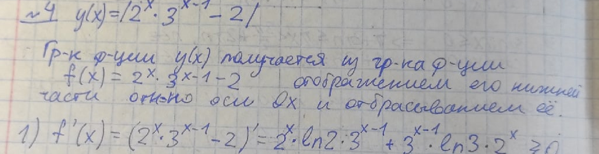 №4 y(x)=|2^x · 3^{x-1} - 2|
Гр-к ф-ции y(x) получается из гр-ка ф-ции
f(x) = 2^x · 3^{x-1} - 2 отображением его нижней
части отн-но оси Ox и отбрасыванием её.
1) f'(x) = (2^x · 3^{x-1} - 2)' = 2^x · ln2 · 3^{x-1} + 3^{x-1} · ln3 · 2^x ≥ 0